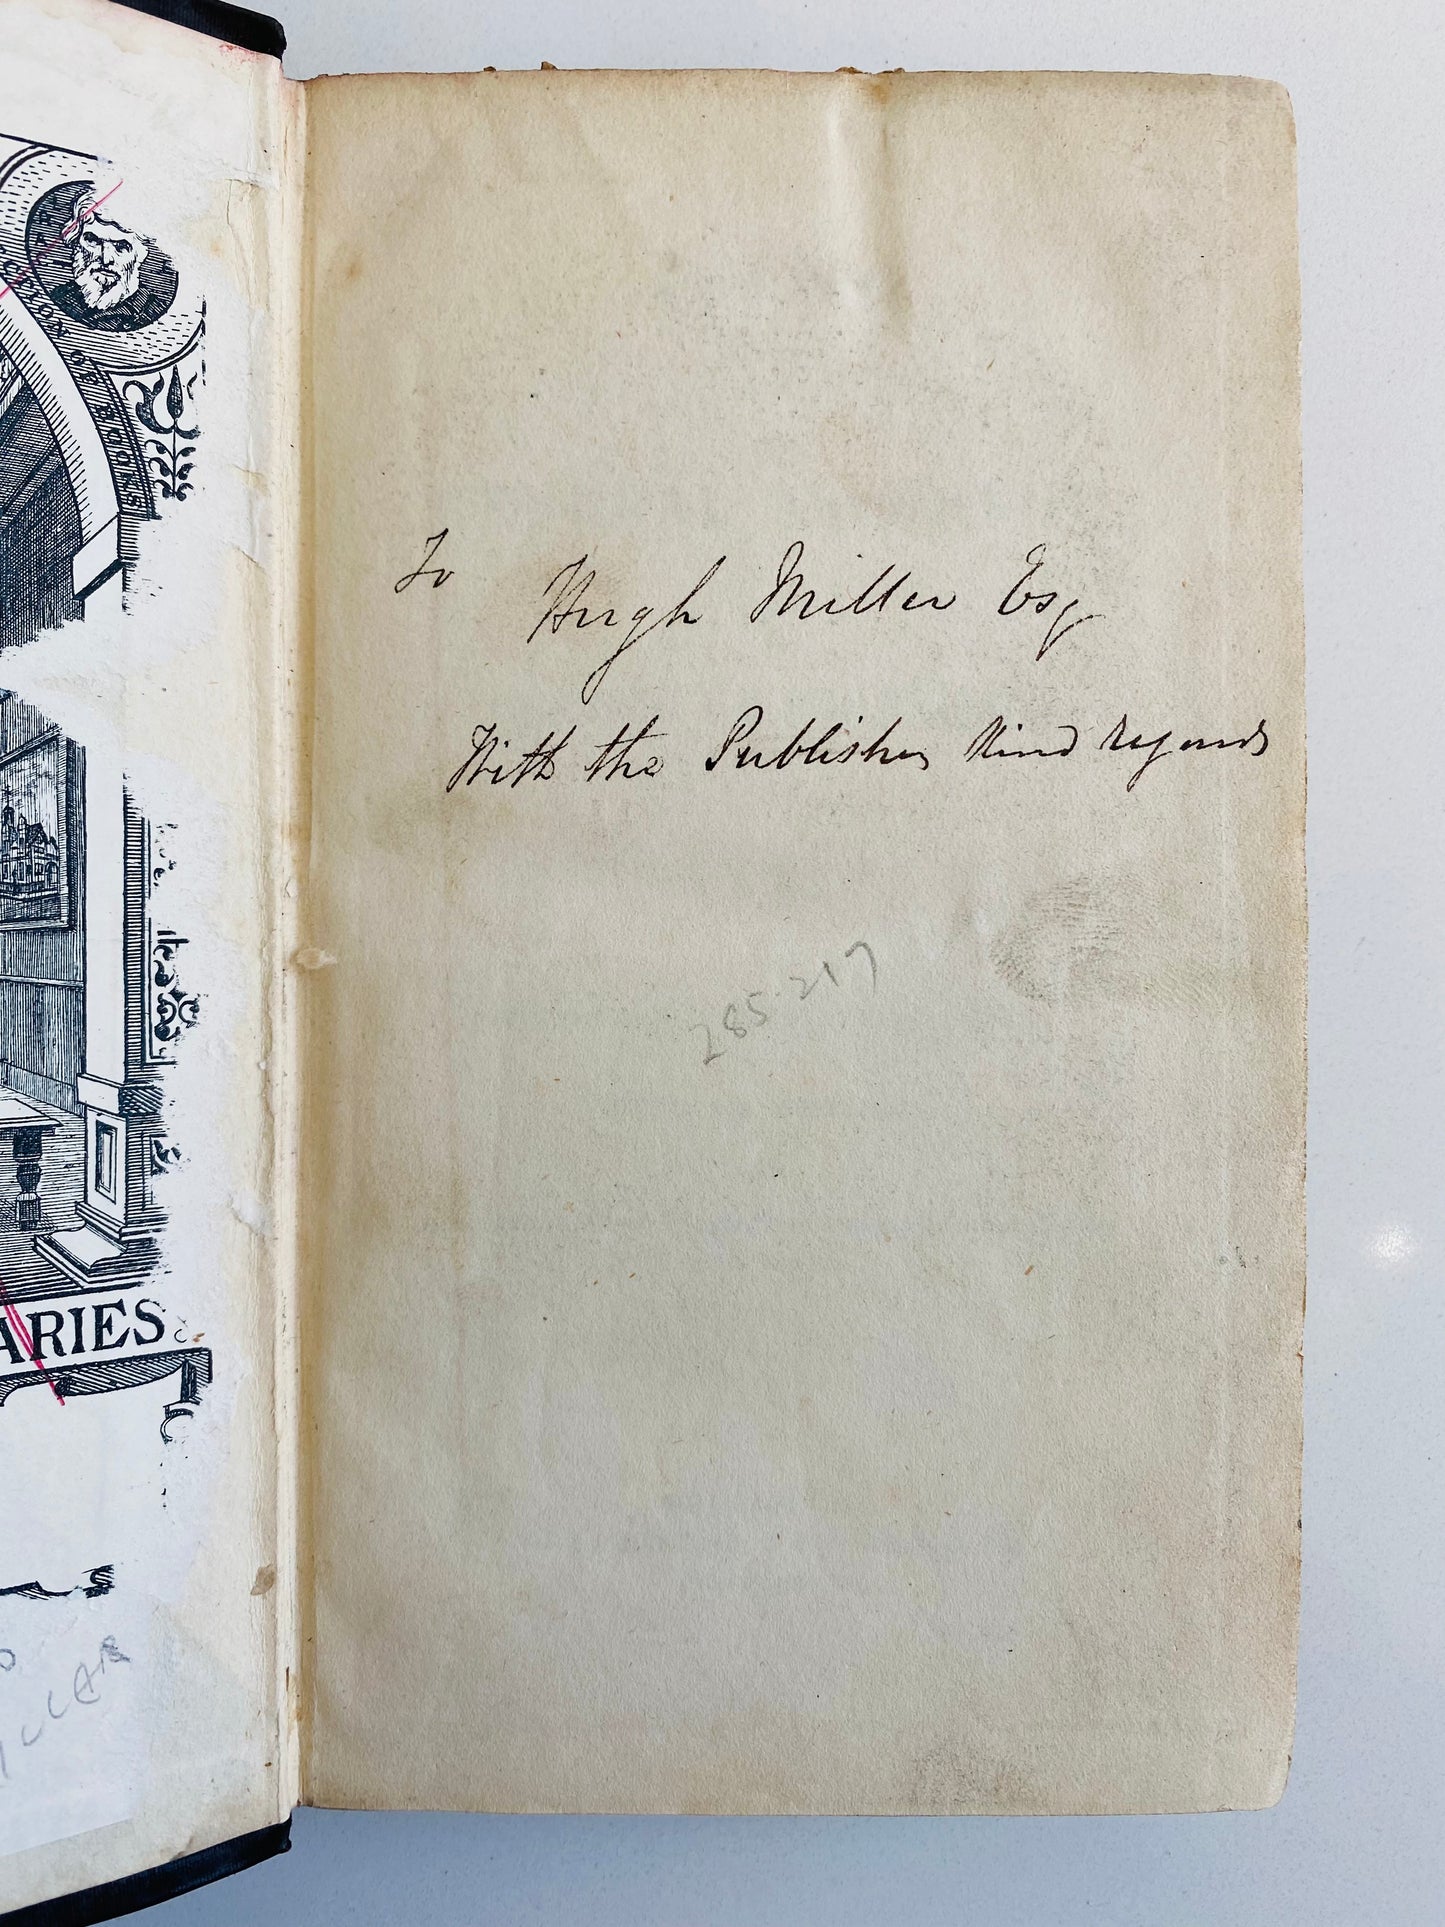 LEXICON OF BOOKS
ARIES
LLAR
To Hugh Miller Esq
With the Publishers Kind regards
285.217